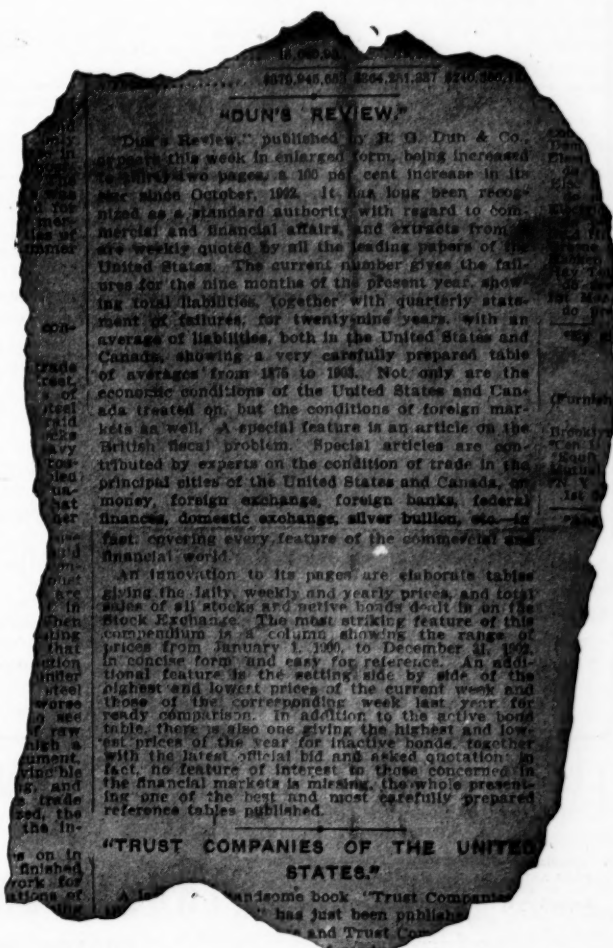 $379,946,683 $364,281,337
"DUN'S REVIEW."
"Dun's Review," published by R. G. Dun & Co.,
appears this week in enlarged form, being increased
to thirty-two pages, a 100 per cent increase in its
size since October, 1902. It has long been recog-
nized as a standard authority with regard to com-
mercial and financial affairs, and extracts from it
are weekly quoted by all the leading papers of the
United States. The current number gives the fail-
ures for the nine months of the present year, show-
ing total liabilities, together with quarterly state-
ment of failures, for twenty-nine years, with an
average of liabilities, both in the United States and
Canada, showing a very carefully prepared table
of averages from 1875 to 1903. Not only are the
economic conditions of the United States and Can-
ada treated on, but the conditions of foreign mar-
kets as well. A special feature is an article on the
British fiscal problem. Special articles are con-
tributed by experts on the condition of trade in the
principal cities of the United States and Canada, on
money, foreign exchange, foreign banks, federal
finances, domestic exchange, silver bullion, etc.—in
fact, covering every feature of the commercial and
financial world.
An innovation to its pages are elaborate tables
giving the daily, weekly and yearly prices, and total
sales of all stocks and active bonds dealt in on the
Stock Exchange. The most striking feature of this
compendium is a column showing the range of
prices from January 1, 1900, to December 31, 1902,
in concise form and easy for reference. An addi-
tional feature is the setting side by side of the
highest and lowest prices of the current week and
those of the corresponding week last year for
ready comparison. In addition to the active bond
table, there is also one giving the highest and low-
est prices of the year for inactive bonds, together
with the latest official bid and asked quotation; in
fact, no feature of interest to those concerned in
the financial markets is missing, the whole present-
ing one of the best and most carefully prepared
reference tables published.
"TRUST COMPANIES OF THE UNITED
STATES."
A handsome book "Trust Companies
has just been publish
and Trust Com